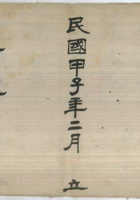 民國甲子年二月 立